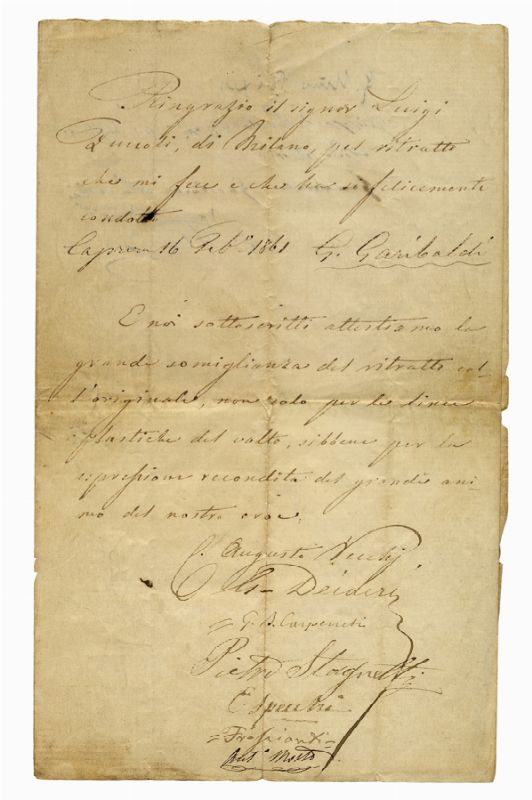 Ringrazio il signor Luigi
Zuccoli, di Milano, pel ritratto
che mi fece e che ha sì felicemente
condotto
Caprera 16 Feb.º 1861 G. Garibaldi
E noi sottoscritti attestiamo la
grande somiglianza del ritratto col-
l'originale, non solo per le linee
plastiche del volto, sibbene per la
espressione recondita del grande ani-
mo del nostro eroe.
C. Augusto Vecchj
Deideri
G. B. Carpeneti
Pietro Stagnetti
E Specchi
Froscianti